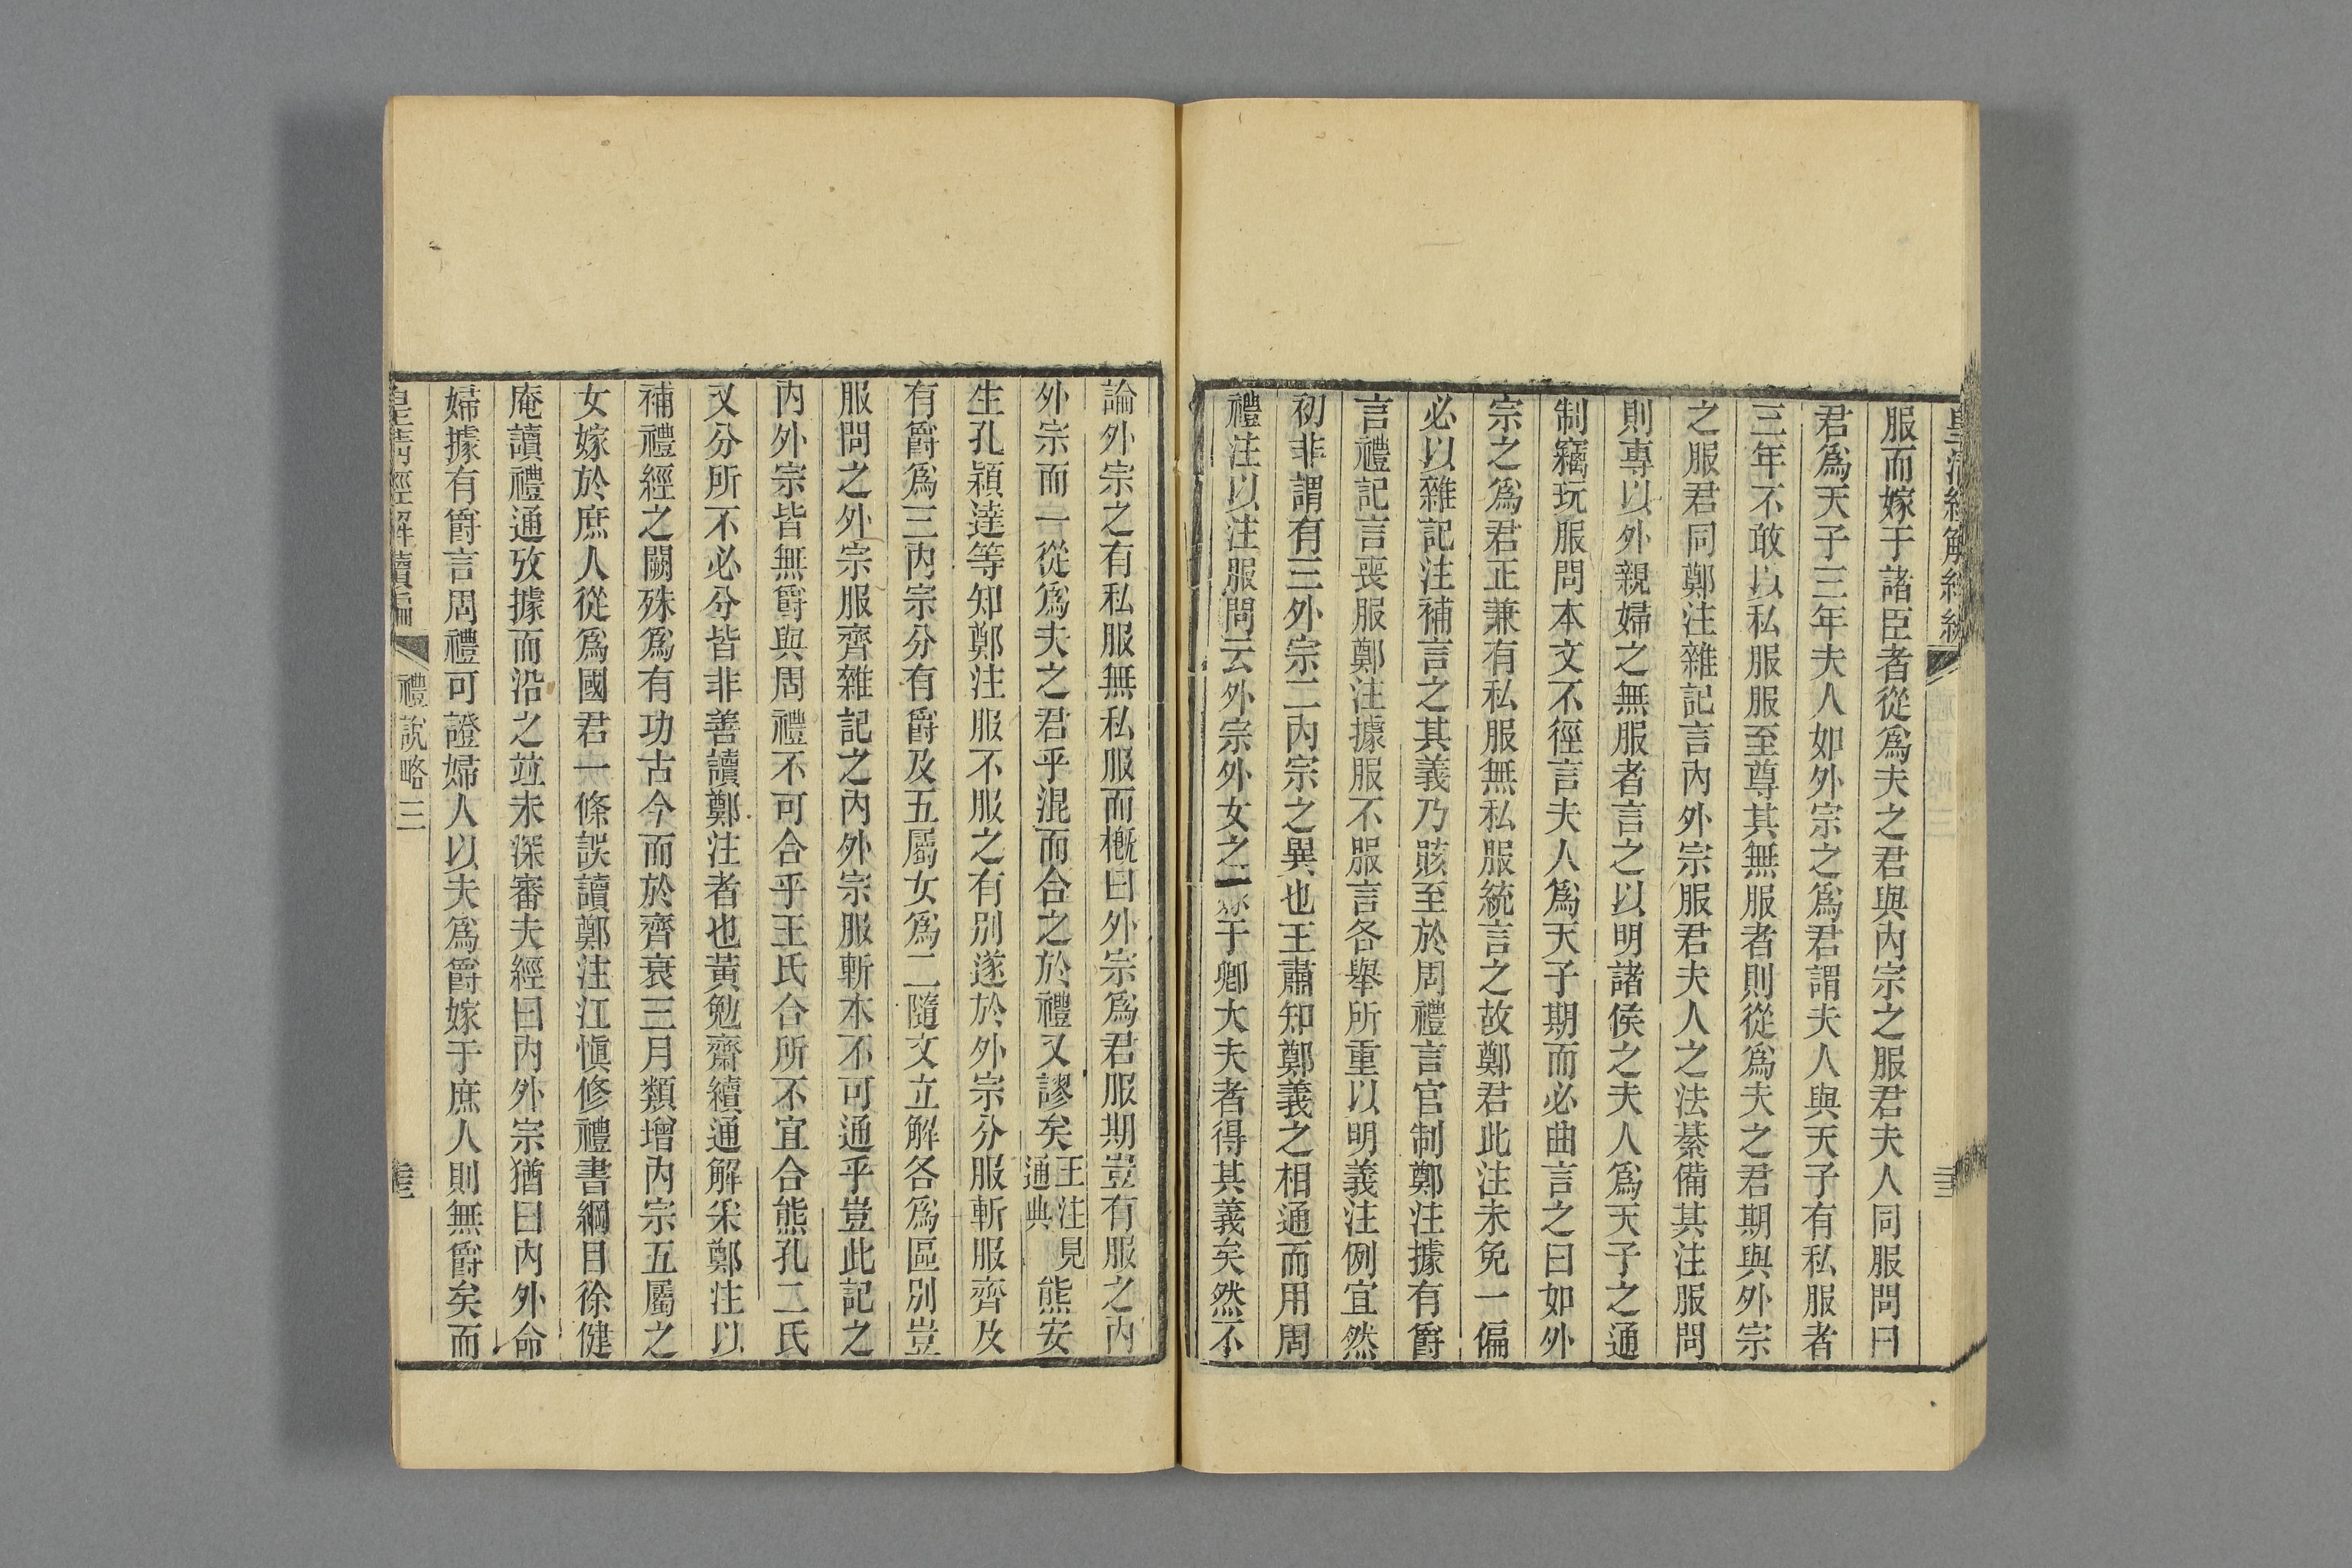 服而嫁于諸臣者從爲夫之君與內宗之服君夫人同服問曰
君爲天子三年夫人如外宗之爲君謂夫人與天子有私服者
三年不敢以私服服至尊其無服者則從爲夫之君期與外宗
之服君同鄭注雜記言內外宗服君夫人之法綦備其注服問
則專以外親婦之無服者言之以明諸侯之夫人爲天子之通
制竊玩服問本文不徑言夫人爲天子期而必曲言之曰如外
宗之爲君正兼有私服無私服統言之故鄭君此注未免一偏
必以雜記注補言之其義乃賅至於周禮言官制鄭注據有爵
言禮記言喪服鄭注據服不服言各舉所重以明義注例宜然
初非謂有三外宗二內宗之異也王肅知鄭義之相通而用周
禮注以注服問云外宗外女之于卿大夫者得其義矣然不
論外宗之有私服無私服而槪曰外宗爲君服期豈有服之內
外宗而一從爲夫之君乎混而合之於禮又謬矣王注見通典熊安
生孔穎達等知鄭注服不服之有別遂於外宗分服斬服齊及
有爵爲三內宗分有爵及五屬女爲二隨文立解各爲區別豈
服問之外宗服齊雜記之內外宗服斬本不可通乎豈此記之
內外宗皆無爵與周禮不可合乎王氏合所不宜合熊孔二氏
又分所不必分皆非善讀鄭注者也黃勉齋續通解采鄭注以
補禮經之闕殊爲有功古今而於齊衰三月類增內宗五屬之
女嫁於庶人從爲國君一條誤讀鄭注江愼修禮書綱目徐健
庵讀禮通攷據而沿之竝未深審夫經曰內外宗猶曰內外命
婦據有爵言周禮可證婦人以夫爲爵嫁于庶人則無爵矣而
皇淸經解續編 禮說略三